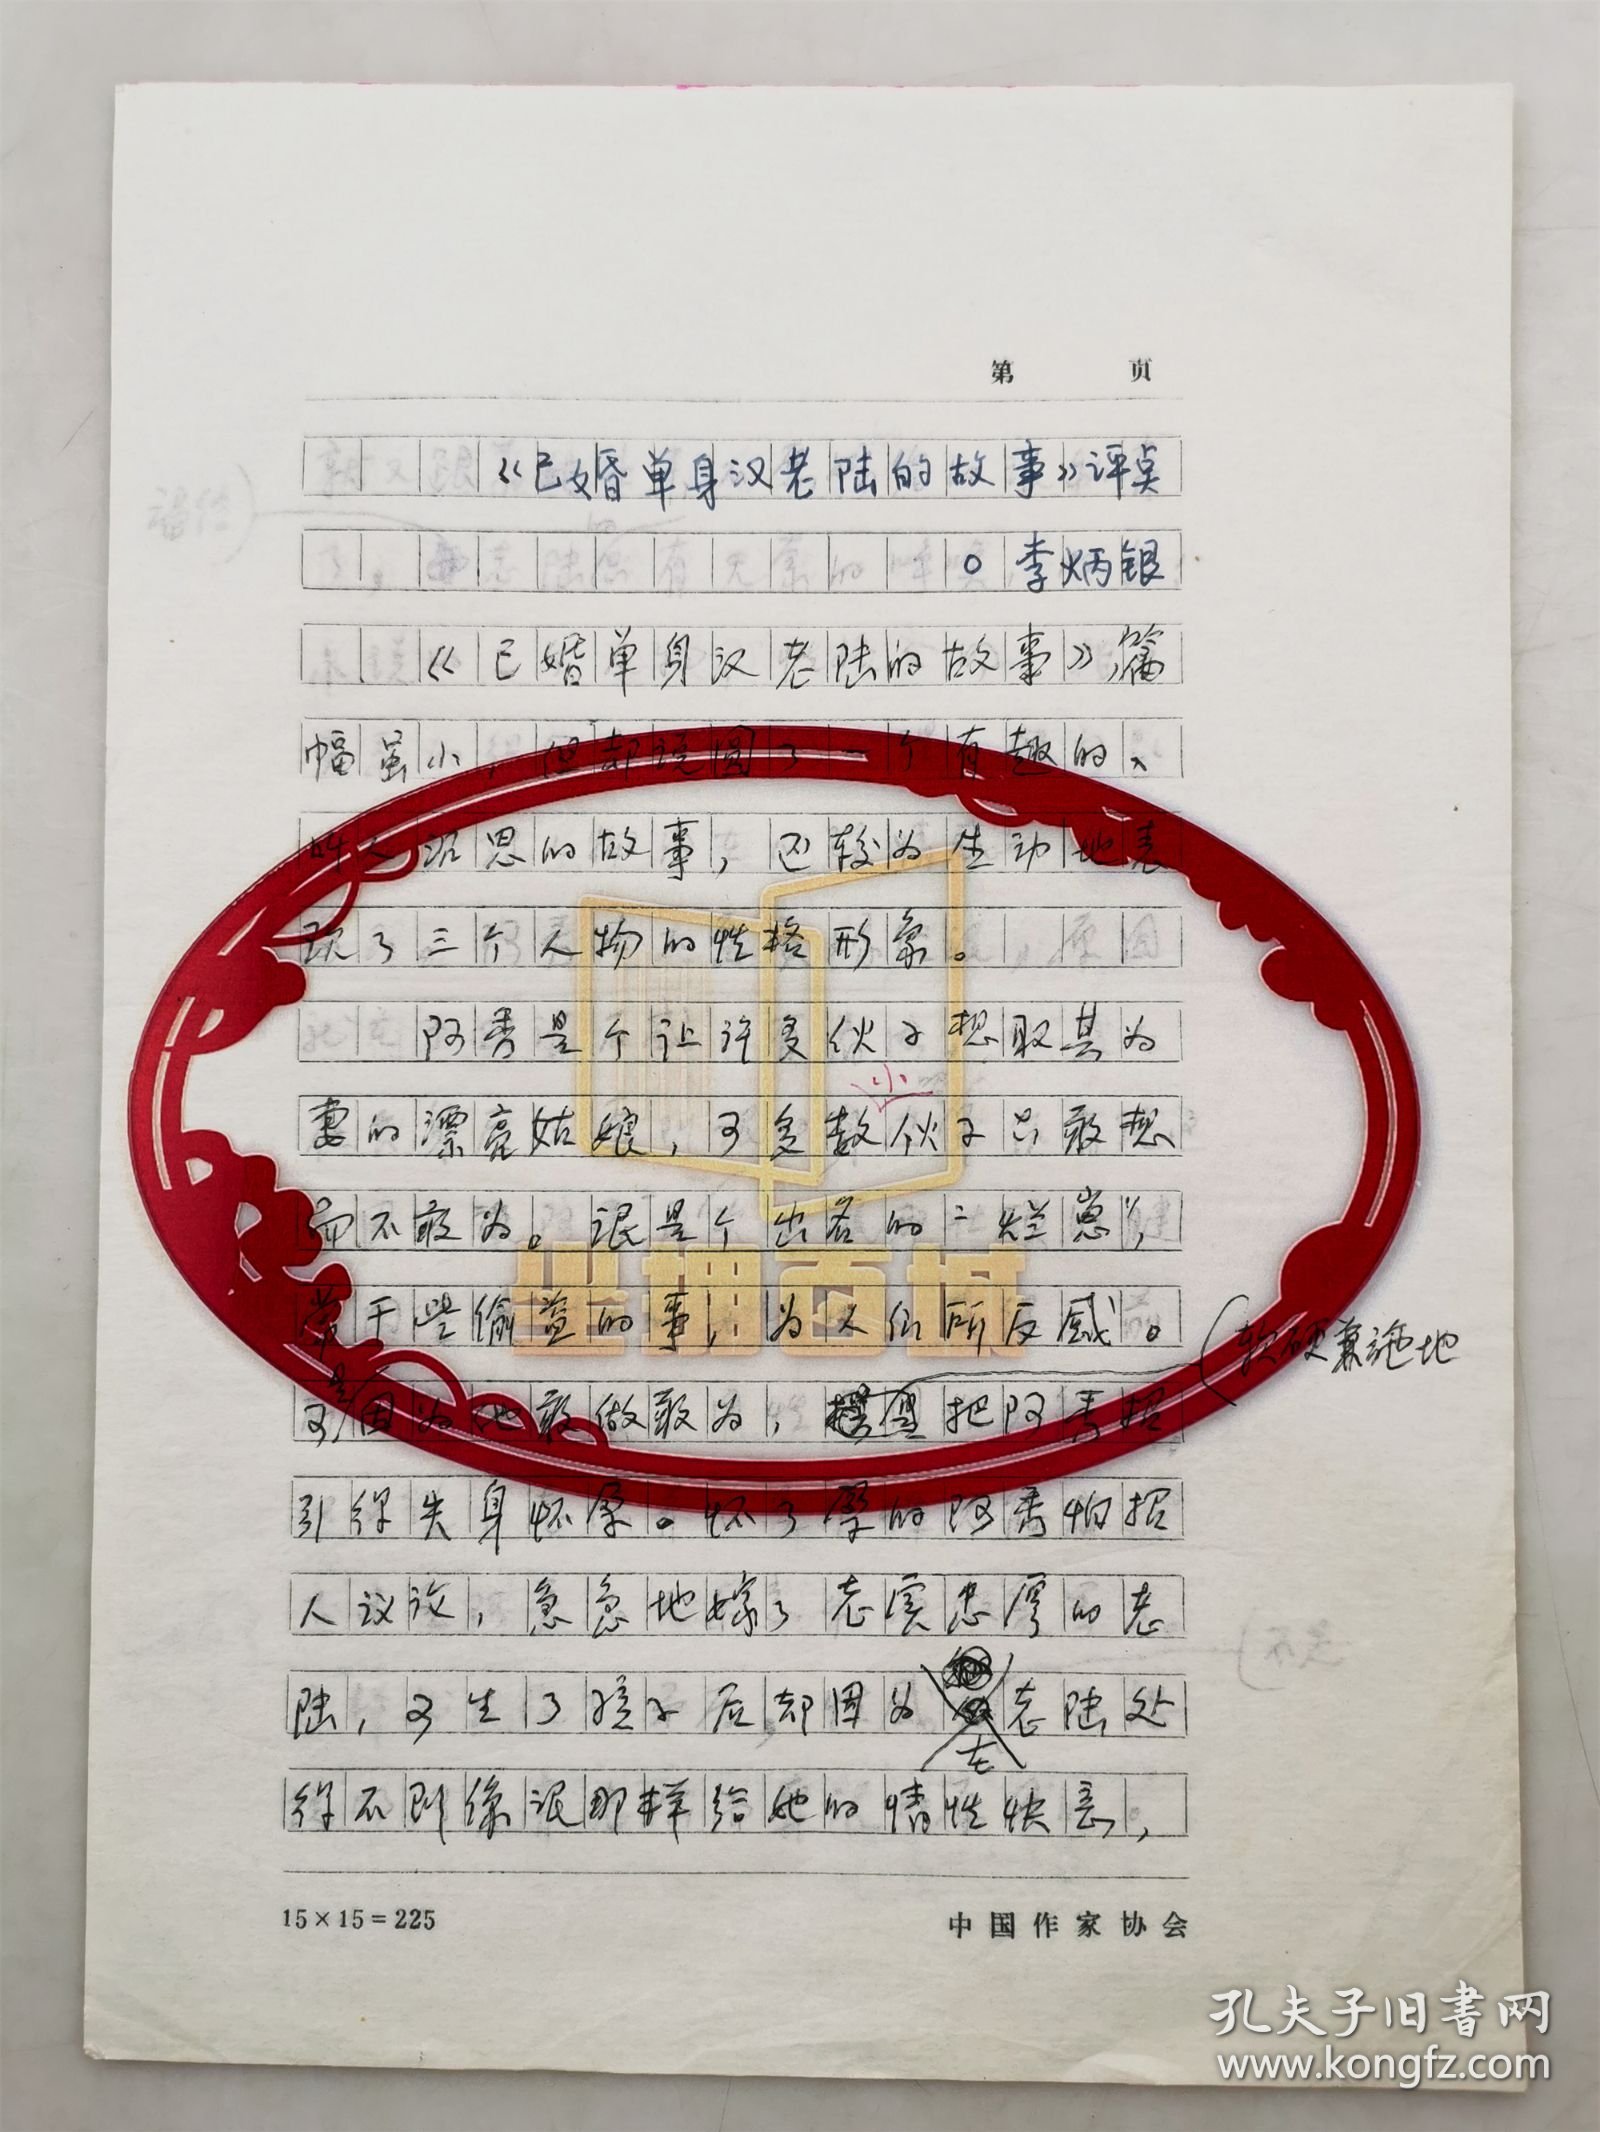 第 页
《已婚单身汉老陆的故事》评点
。李炳银
《已婚单身汉老陆的故事》,篇
幅虽小,但却说圆了一个有趣的、
叫人沉思的故事,还较为生动地表
现了三个人物的性格形象。
阿秀是个让许多伙子想取其为
小
妻的漂亮姑娘,可多数伙子只敢想
而不敢为。混是个出名的“烂崽”,
常干些偷盗的事,为人们所反感。
软硬兼施地
可是因为他敢做敢为,把阿秀招
引得失身怀孕。怀了孕的阿秀怕招
人议论,急急地嫁了老实忠厚的老
陆,可生了孩子后却因为老陆处
在
得不到像混那样给她的情性快意,
15×15=225
中国作家协会
孔夫子旧书网
www.kongfz.com